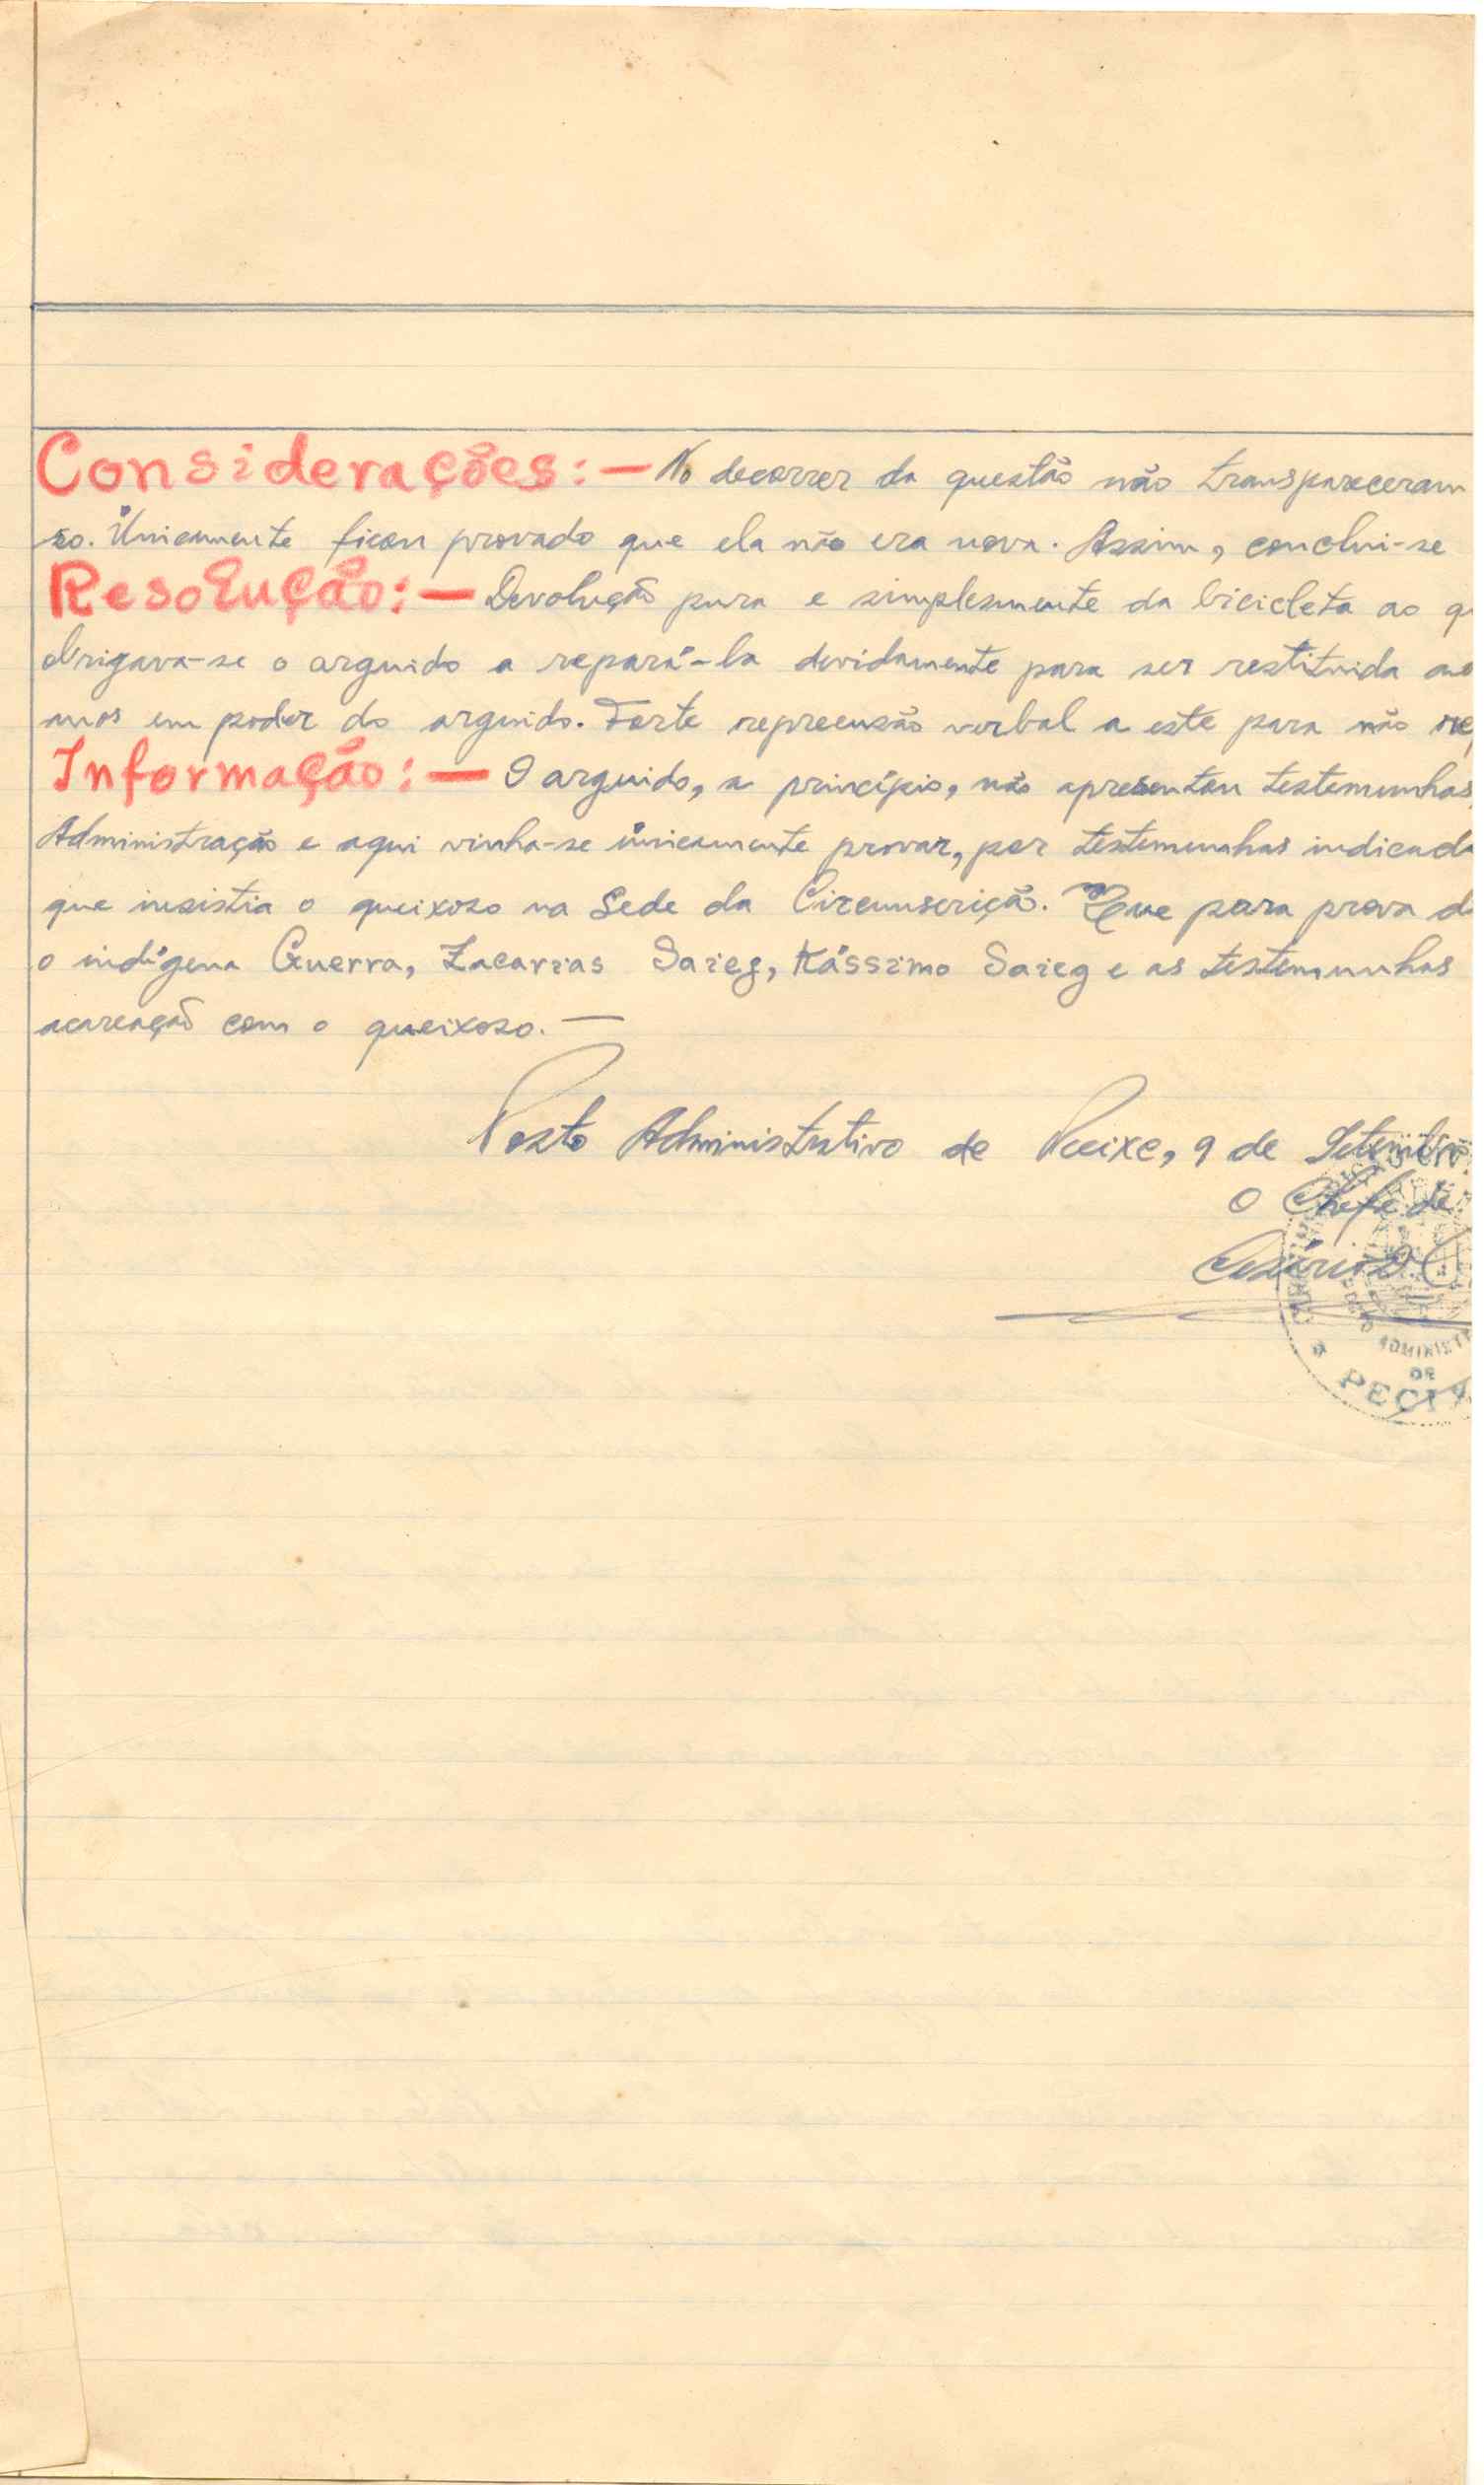 Considerações:— No decorrer da questão não transpareceram
so. Ùnicamente ficou provado que ela não era nova. Assim, conclui-se
Resolução:— Devolução pura e simplesmente da bicicleta ao q
obrigava-se o arguido a repará-la devidamente para ser restituida ao
mos em poder do arguido. Forte repreensão verbal a este para não re
Informação:— O arguido, a princípio, não apresentou testemunhas
Administração e aqui vinha-se ùnicamente provar, por testemunhas indicada
que insistia o queixoso na Sede da Circunscrição. Que para prova d
o indígena Guerra, Zacarias Saieg, Kássimo Saieg e as testemunhas
acareação com o queixoso.—
Posto Administrativo de 9 de Setembro
O Chefe de
Cesário
POSTO ADMINIST
DE